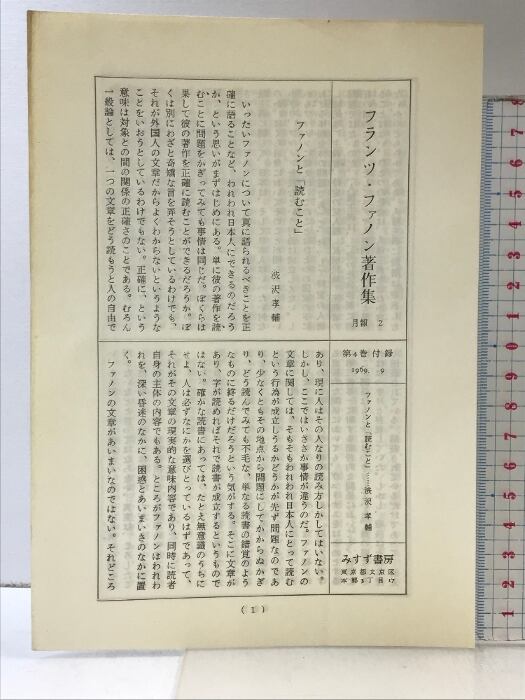 フランツ・ファノン著作集
月報 2
第4巻付録
1969. 9
ファノンと「読むこと」……渋沢孝輔
みすず書房
東京都文京区
本郷3丁目17
ファノンと「読むこと」
渋沢孝輔
いったいファノンについて真に語られるべきことを正
確に語ることなど、われわれ日本人にできるのだろう
か、という思いがまずはじめにある。単に彼の著作を読
むことに問題をかぎってみても事情は同じだ。ぼくらは
果して彼の著作を正確に読むことができるだろうか。ぼ
くは別にわざと奇矯な言を弄そうとしているわけでも、
それが外国人の文章だからよくわからないというような
ことをいおうとしているわけでもない。正確に、という
意味は対象との間の関係の正確さのことである。むろん
一般論としては、一つの文章をどう読もうと人の自由で
あり、現に人はその人なりの読み方しかしてはいない。
しかし、ここではいささか事情が違うのだ。ファノンの
文章に関しては、そもそもわれわれ日本人にとって読む
という行為が成立しうるかどうかが先ず問題なのであ
り、少なくともその地点から問題にしてかからぬかぎ
り、どう読んでみても不毛な、単なる読書の錯覚のよう
なものに終るだけだろうという気がする。そこに文章が
あり、字が読めればそれで読書が成立するというもので
はない。確かな読書にあっては、たとえ無意識のうちに
せよ、人は必ずなにかを選びとっているはずであって、
それがその文章の現実的な意味内容であり、同時に読者
自身の主体の内容でもある。ところがファノンはわれわ
れを、深い昏迷のなかに、困惑とあいまいさのなかに置
く。
ファノンの文章があいまいなのではない。それどころ
( 1 )